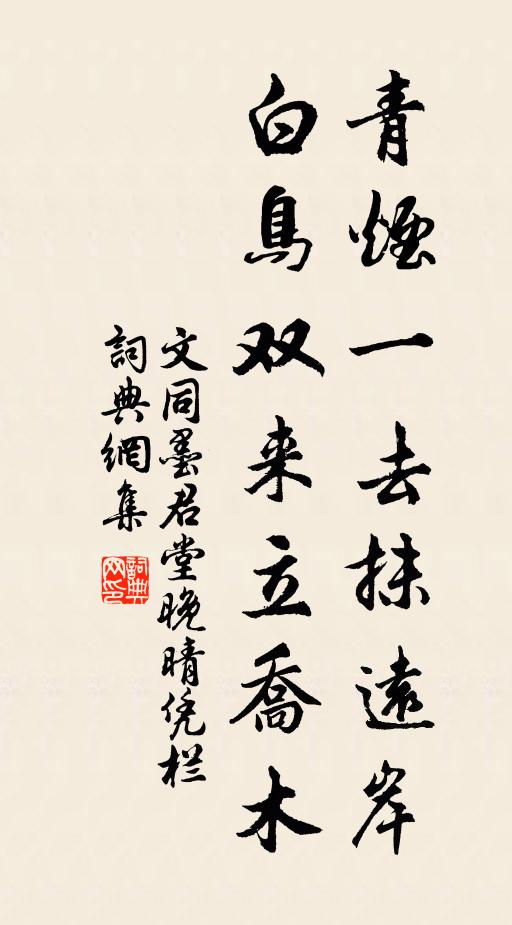 青煙一去抹遠岸
白鳥双来立喬木
文同墨君堂晚晴凭栏
詞典網集
詞典网印